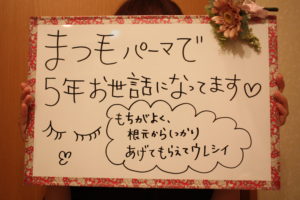 まつ毛パーマで
5年お世話になってます♡
もちがよく、
根元からしっかり
あげてもらえてウレシイ